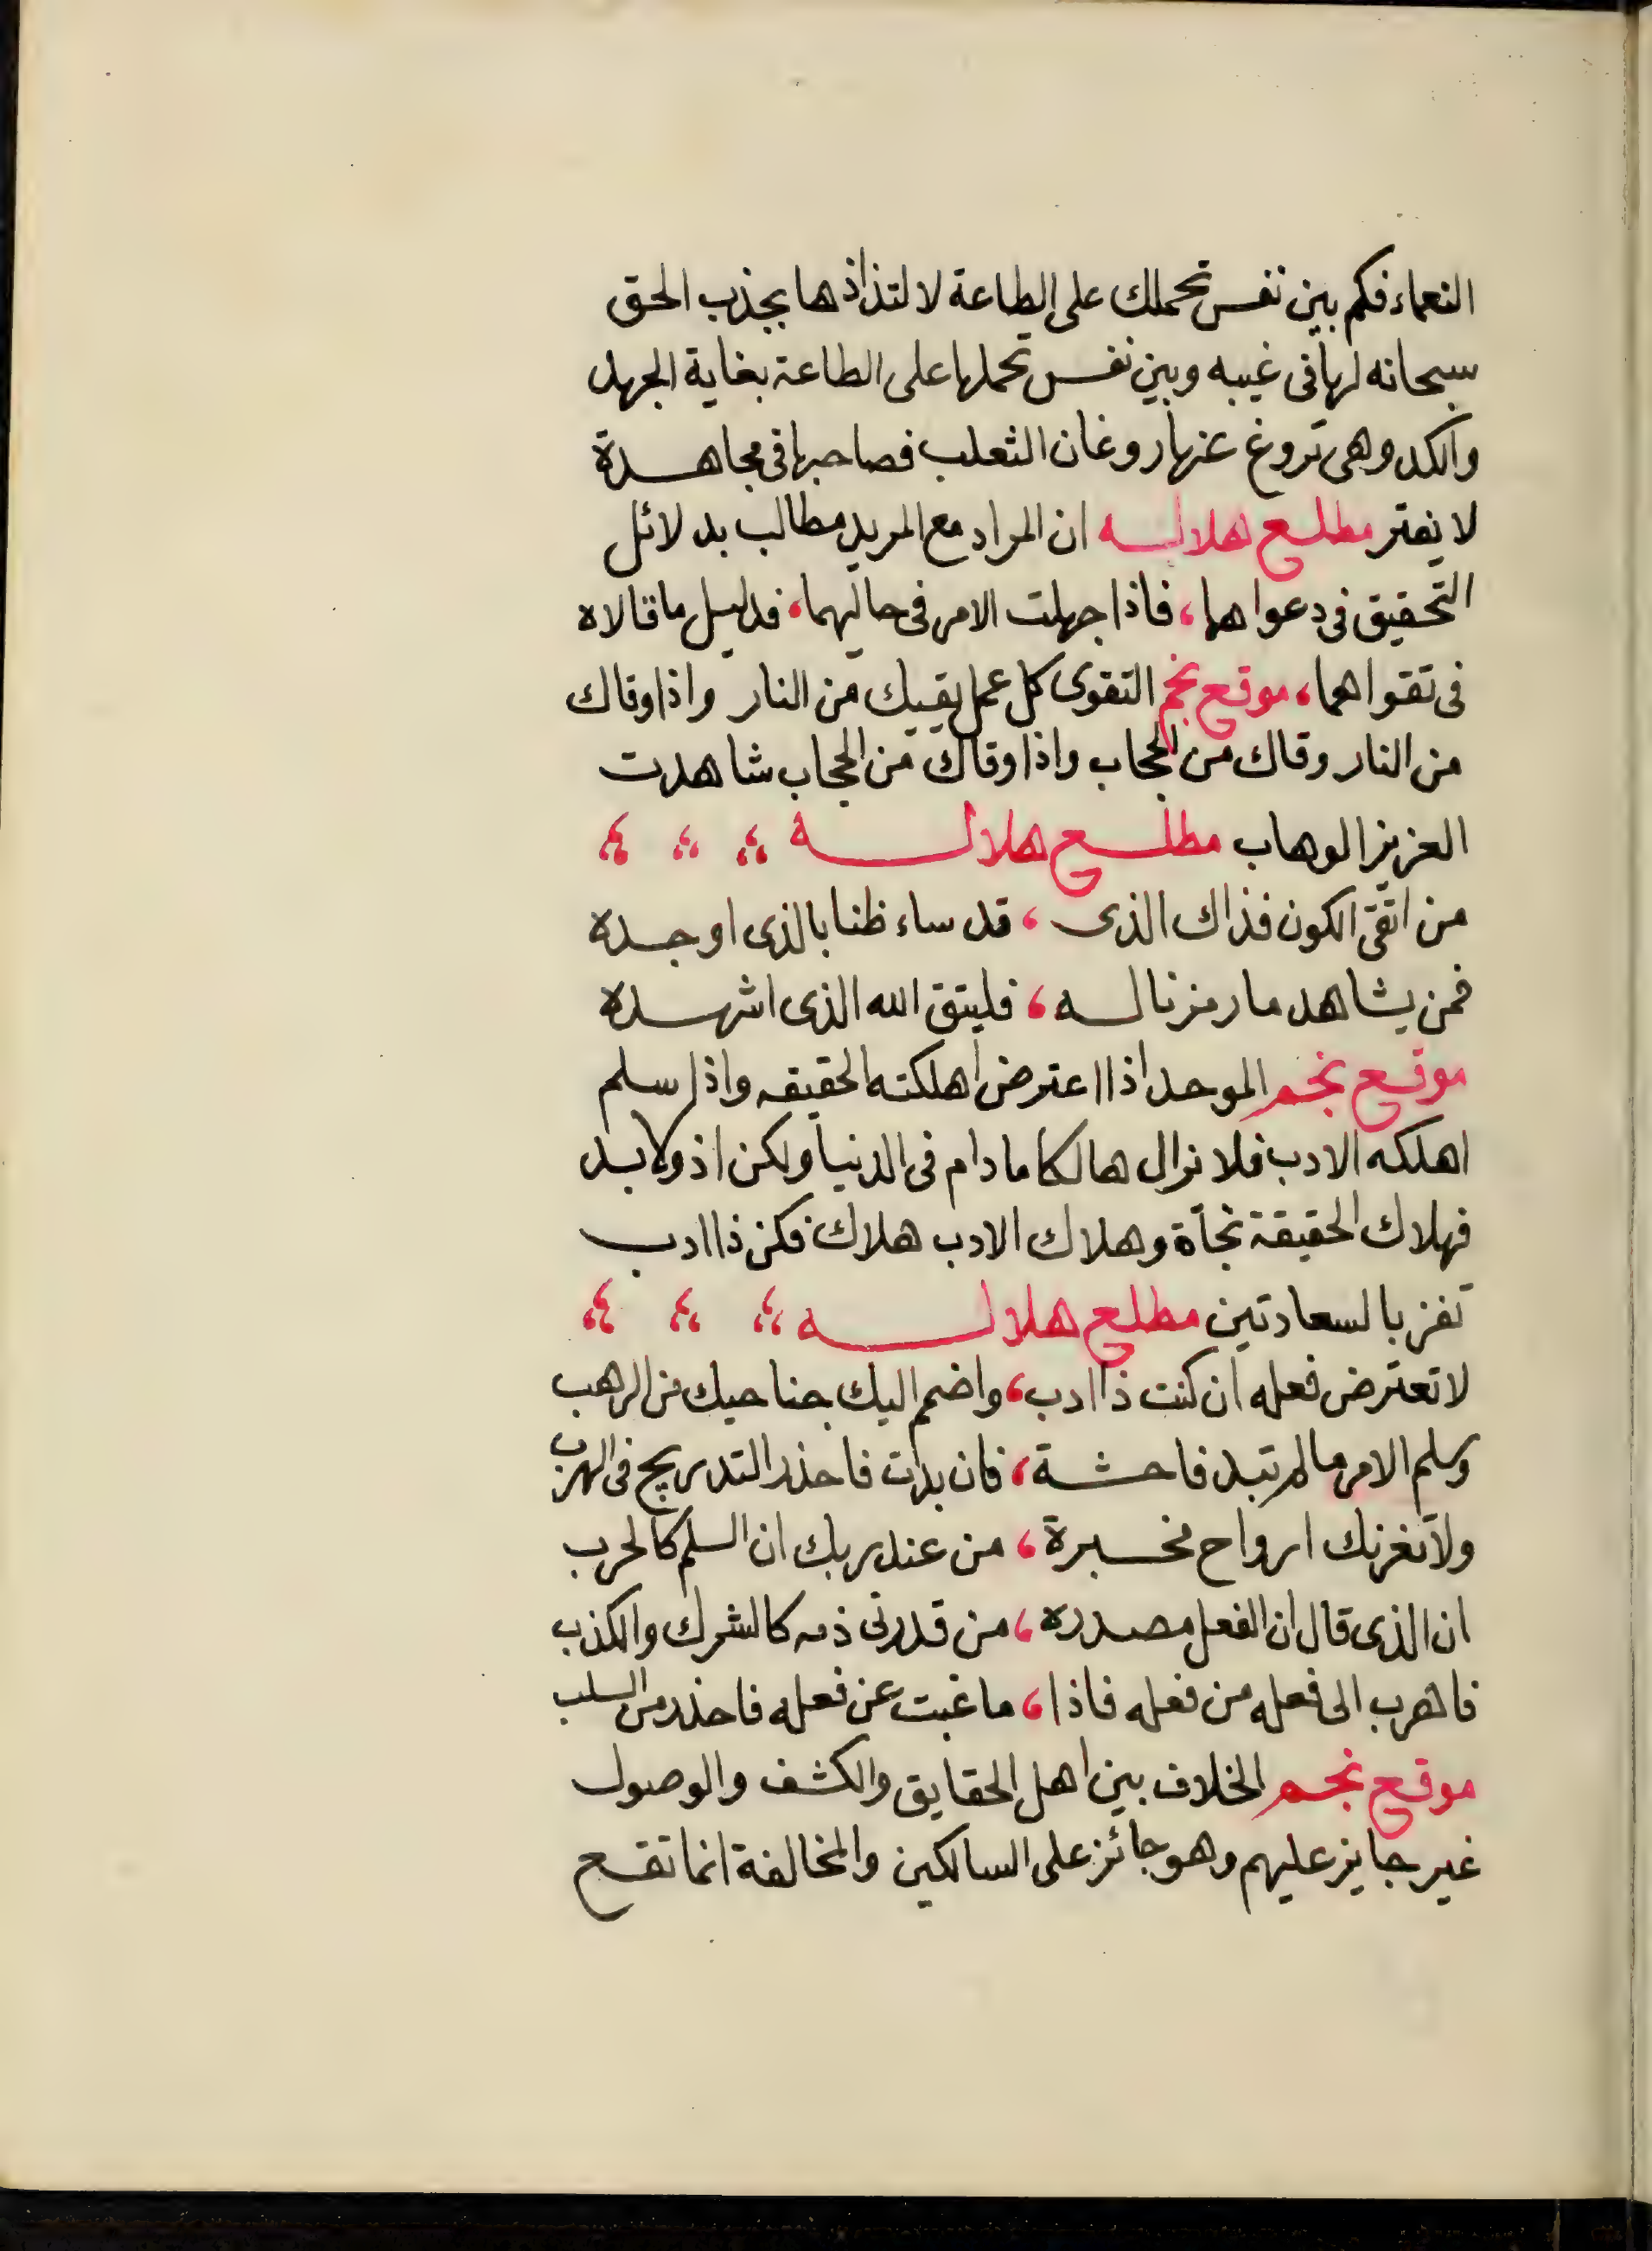 النعماء فكم بين نفس تحملك على الطاعة لالتذاذها بجذب الحق
سبحانه لها فى غيبه وبين نفس تحملها على الطاعة بغاية الجهد
والكد وهى تروغ عنها روغان الثعلب فصاحبها فى مجاهدة
لا يفتر مطلع هلاله ان المراد مع المريد مطالب بدلائل
التحقيق فى دعواهما، فاذا جهلت الامر فى حاليهما، فدليل ما قالاه
فى تقواهما، موقع نجم التقوى كل عمل يقيك من النار واذا وقاك
من النار وقاك من الحجاب واذا وقاك من الحجاب شاهدت
العزيز الوهاب مطلع هلاله
من اتقى الكون فذاك الذى ، قد ساء ظنا بالذى اوجده
فمن يشاهد ما رمزنا له ، فليتق الله الذى اشهده
موقع نجم الموحد اذا اعترض اهلكته الحقيقه واذا سلم
اهلكه الادب فلا نزال هالكا ما دام فى الدنيا ولكن اذ ولا بد
فهلاك الحقيقة نجاة وهلاك الادب هلاك فكن ذا ادب
تفز بالسعادتين مطلع هلاله
لا تعترض فعله ان كنت ذا ادب ، واضمم اليك جناحيك من الرهب
وسلم الامر ما لم تبد فاحشة ، فان بدات فاحذر التدريج فى الهرب
ولا تغرنك ارواح مخبرة ، من عند ربك ان السلم كالحرب
ان الذى قال ان الفعل مصدره ، من قدرتى ذمه كالشرك والكذب
فاهرب الى فعله من فعله فاذا ، ما غبت عن فعله فاحذر من السلب
موقع نجم الخلاف بين اهل الحقايق والكشف والوصول
غير جايز عليهم وهو جائز على السالكين والمخالفة انما تقع